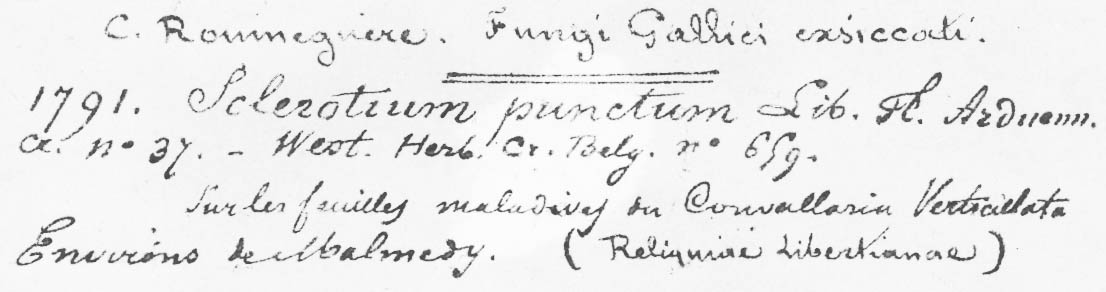 C. Roumeguere. Fungi Gallici exsiccati.
1791. Sclerotium punctum Lib. Fl. Arduenn.
Cr. nº 37. - West. Herb. Cr. Belg. nº 659.
Sur les feuilles maladives du Convallaria Verticillata
Environs de Malmedy. (Reliquiae Libertianae)